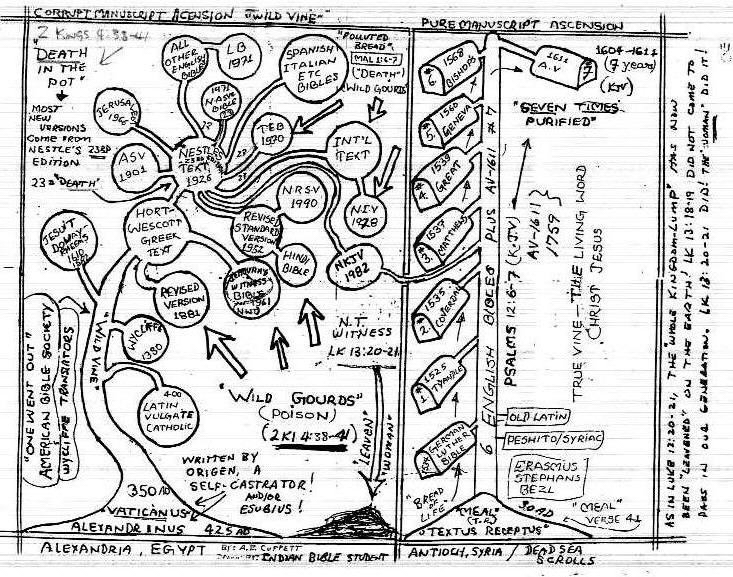 CORRUPT MANUSCRIPT ACENSION "WILD VINE"
2 KINGS 4:38-41
"DEATH
IN THE
POT"
MOST
NEW
VERSIONS
COME FROM
NESTLE'S 23RD
EDITION
23 = "DEATH"
ALL
OTHER
ENGLISH
BIBLES
LB
1971
1971
NASV
BIBLE
SPANISH
ITALIAN
ETC
BIBLES
"POLLUTED
BREAD"
MAL 1:6-7
("DEATH")
(WILD GOURDS)
JERUSALEM
1966
ASV
1901
NESTLE
TEXT
1926
TEB
1970
INT'L
TEXT
NIV
1978
NRSV
1990
REVISED
STANDARD
VERSION
1952
HINDI
BIBLE
NKJV
1982
HORT-
WESCOTT
GREEK
TEXT
JEHOVAH'S
WITNESS
BIBLE
1961
NWT
JESUIT
DOUAY-
RHEIMS
1582
REVISED
VERSION
1881
WYCLIFFE
1380
400
LATIN
VULGATE
CATHOLIC
"WILD VINE"
"ONE WENT OUT"
AMERICAN BIBLE SOCIETY
WYCLIFFE TRANSLATORS
N.T.
WITNESS
LK 13:20-21
"WILD GOURDS"
(POISON)
(2 KI 4:38-41)
"LEAVEN"
"WOMAN"
WRITTEN BY
ORIGEN, A
SELF-CASTRATOR!
AND/OR
ESUBIUS!
350 AD
VATICANUS
ALEXANDRINUS 425 AD
ALEXANDRIA, EGYPT
BY: A.E. COPPETT
INDIAN BIBLE STUDENT
PURE MANUSCRIPT ASCENSION
1568
BISHOPS
#6
1560
GENEVA
#5.
1539
GREAT
#4
1537
MATTHEWS
#3.
1535
COVERDALE
#2.
1525
TYNDALE
#1
1534
GERMAN
LUTHER
BIBLE
1611
A.V
#7
1604-1611
(7 years)
(KJV)
"SEVEN TIMES
PURIFIED"
6 ENGLISH BIBLES PLUS AV-1611 #7
PSALMS 12:6-7 (KJV)
AV-1611}
1759}
TRUE VINE—THE LIVING WORD
CHRIST JESUS
OLD LATIN
PESHITO/SYRIAC
ERASMUS
STEPHANS
BEZL
"BREAD OF
LIFE"
30 AD
"MEAL"
(T.R.)
"TEXTUS RECEPTUS"
"MEAL"
VERSE 41
ANTIOCH, SYRIA / DEAD SEA
SCROLLS
AS IN LUKE 12:20-21, THE "WHOLE KINGDOM-LUMP" HAS NOW
BEEN "LEAVENED" ON THE EARTH! LK 13:18-19 DID NOT COME TO
PASS IN OUR GENERATION. LK 13:20-21 DID! THE "WOMAN" DID IT!